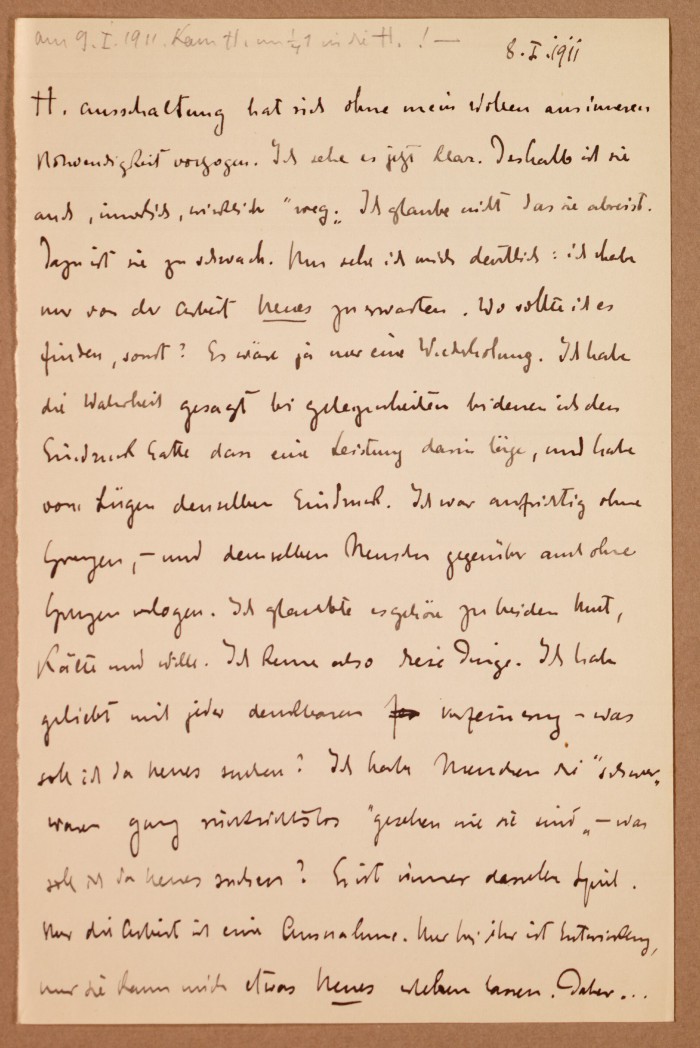 am 9.I.1911. Kam H. um ¼1 in die H. ! —
8.I.1911
H. ausschaltung hat sich ohne mein Wollen aus inneren
Notwendigkeit vollzogen. Ich sehe es jetzt klar. Deshalb ist sie
auch, innerlich, wirklich "weg„. Ich glaube nicht das sie abreist.
Dazu ist sie zu schwach. Nun sehe ich mich deutlich: ich habe
nur von der Arbeit Neues zu erwarten. Wo sollte ich es
finden, sonst? Es wäre ja nur eine Wiederholung. Ich habe
die Wahrheit gesagt bei gelegenheiten bei denen ich den
Eindruck hatte dass eine Leistung darin läge, und habe
vom Lügen denselben Eindruck. Ich war aufrichtig ohne
Grenzen, – und demselben Menschen gegenüber auch ohne
Grenzen verlogen. Ich glaubte es gehöre zu beiden Mut,
Kälte und Wille. Ich kenne also diese Dinge. Ich habe
geliebt mit jeder denkbaren verfeinerung – was
soll ich da Neues suchen? Ich habe Menschen die "schwer„
waren ganz rücksichtslos "gesehen wie sie sind„ – was
soll ich da Neues suchen? Es ist immer dasselbe Spiel.
Nur die Arbeit ist eine Ausnahme. Nur bei ihr ist Entwicklung,
nur sie kann mich etwas Neues erleben lassen. Daher...